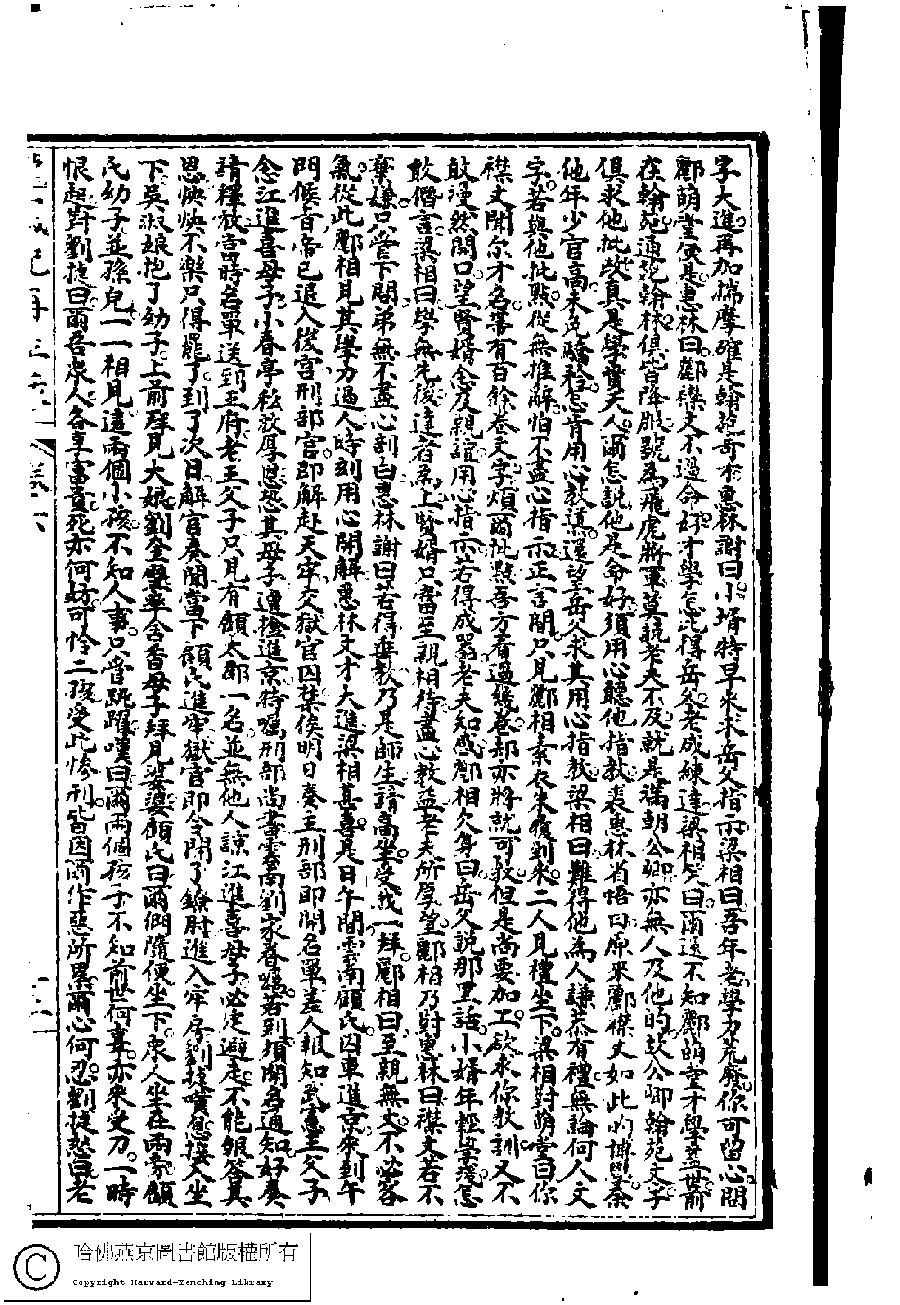 字大進再加揣摩確是翰苑奇才惠林謝曰小壻特早來求岳父指示梁相曰吾年老學力荒廢你可留心問
酈萌堂便是惠林曰酈襟丈不過命好才學怎比得岳父老成練達梁相笑曰爾還不知酈萌堂才學蓋世前
在翰苑通苑翰林俱皆降服號為飛虎將軍莫說老夫不及就是滿朝公卿亦無人及他的故公卿翰苑文字
俱求他批改真是學貫天人爾怎說他是命好須用心聽他指教裴惠林省悟曰原來酈襟丈如此的博學奈
他年少官高未免驕矜怎肯用心教道還望岳父求其用心指教梁相曰難得他為人謙恭有禮無論何人文
字若與他批點從無推辭怕不盡心指示正言間只見酈相素衣朱履到來二人見禮坐下梁相對萌堂曰你
襟丈聞尔才名畧有百餘卷文字煩爾批點吾方看過幾卷却亦將就可教但是尚要加工欲求你教訓又不
敢漫然開口望賢婿念及親誼用心指示若得成器老夫知感酈相欠身曰岳父說那里話小婿年輕學淺怎
敢僭言梁相曰學無先後達者為上賢婿只當至親相待盡心教益老夫所厚望酈相乃對惠林曰襟丈若不
棄嫌只管下問弟無不盡心剖白惠林謝曰若得垂教乃是師生請高坐受我一拜酈相曰至親無文不必客
氣從此酈相見其學力過人時刻用心開解惠林文才大進梁相甚喜是日午間雲南顧氏囚車進京來到午
門候旨帝已退入後宮刑部官即解赴天牢交獄官囚禁俟明日奏主刑部即開名單差人報知武憲王父子
念江進喜母子小春亭私放厚恩恐其母子遭擒進京特囑刑部尚書雲南劉家眷屬若到須開名通知好奏
請釋放當時名單送到王府老王父子只見有顧太郡一名並無他人諒江進喜母子必定避走不能報答其
恩怏怏不樂只得罷了到了次日解官奏聞當下顧氏進牢獄官即令開了鐐肘進入牢房劉捷嘆息接入坐
下吳淑娘抱了幼子上前拜見大娘劉奎璧率舍香母子拜見婆婆顧氏曰爾們隨便坐下眾人坐在兩旁顧
氏幼子並孫兒一一相見這兩個小孩不知人事只管跳躍嘆曰爾兩個孩子不知前世何辜亦來受刀一時
恨起對劉捷曰爾吾眾人各享富貴死亦何妨可怜二孩受此慘刑皆因爾作惡所累爾心何忍劉捷愁曰老
哈佛燕京圖書館版權所有
Copyright Harvard-Yenching Library